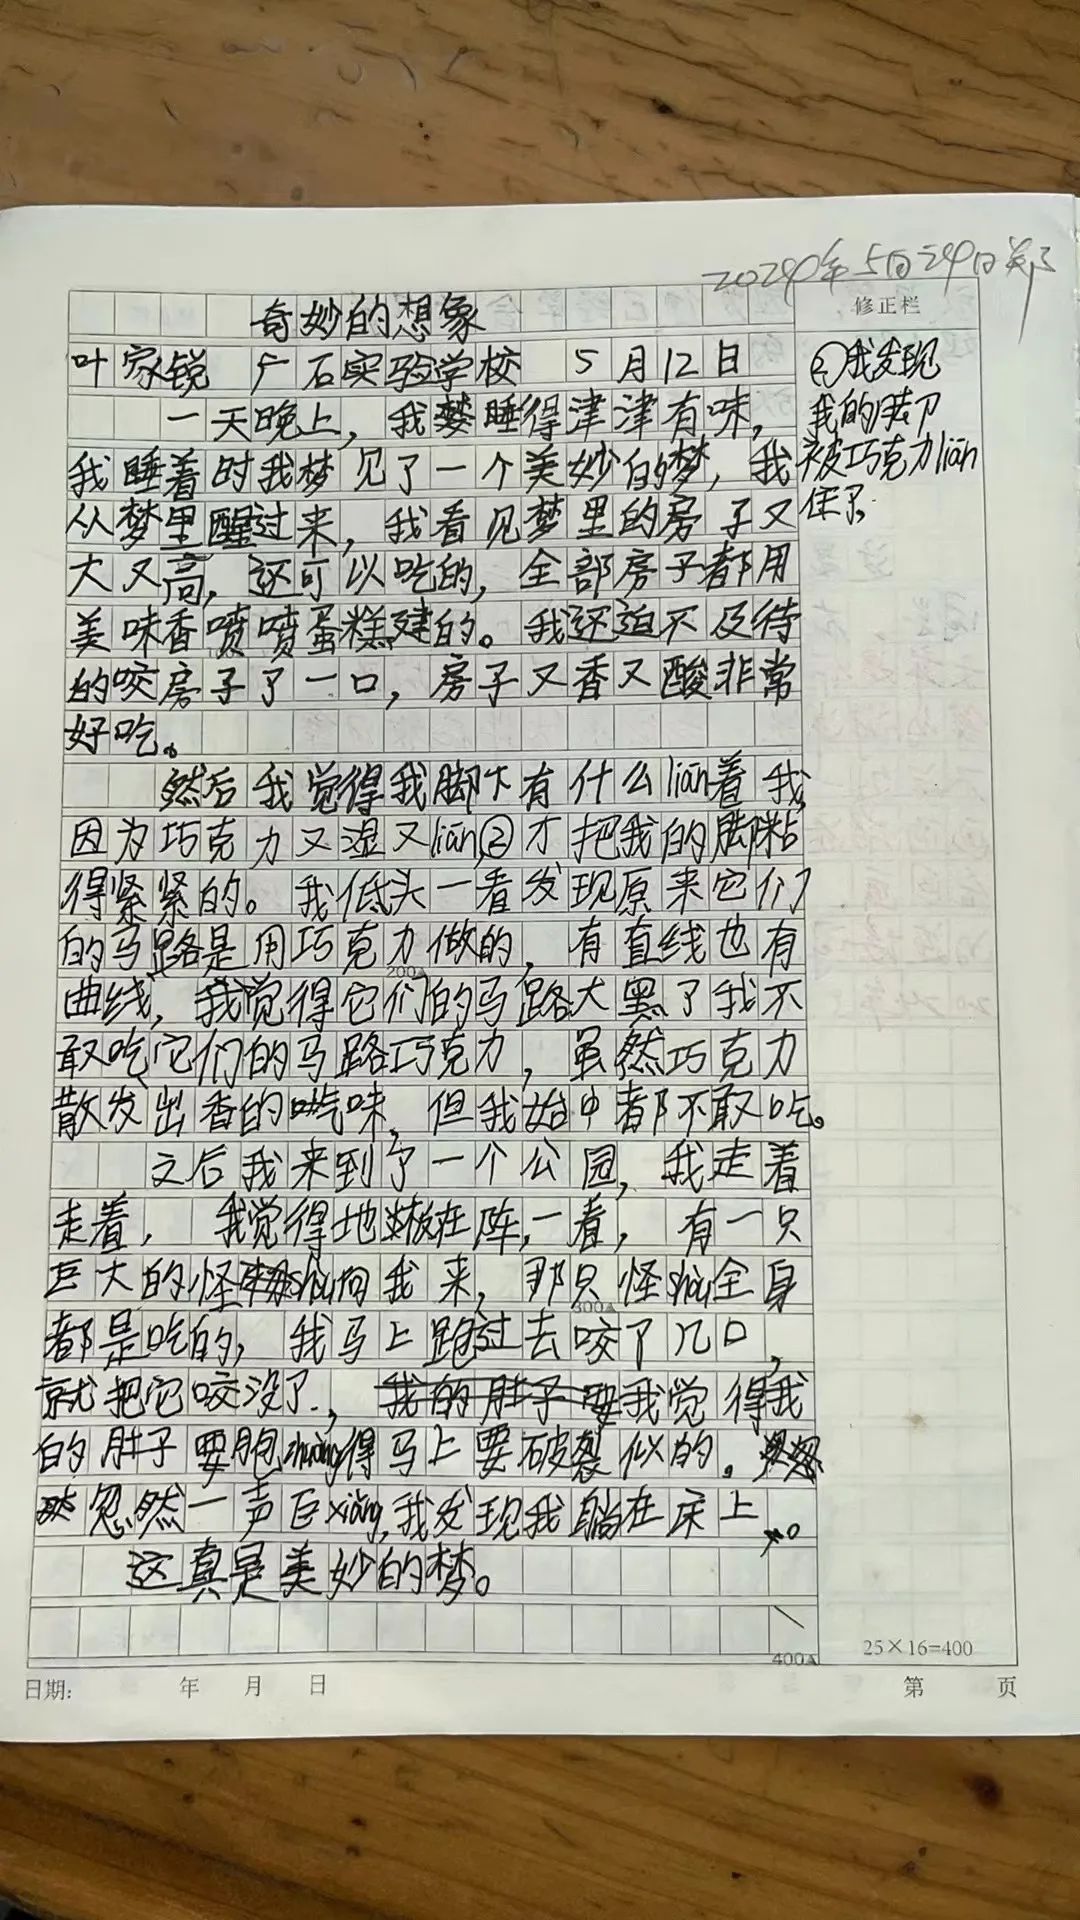 2024年5月24日郑
奇妙的想象
修正栏
叶家锐 广石实验学校 5月12日
一天晚上，我睡得津津有味，
我睡着时我梦见了一个美妙的梦，我
从梦里醒过来，我看见梦里的房子又
大又高，还可以吃的，全部房子都用
美味香喷喷蛋糕建的。我还迫不及待
的咬房子了一口，房子又香又酸非常
好吃。
然后我觉得我脚下有什么liān着我，
因为巧克力又湿又liān，②才把我的脚粘
得紧紧的。我低头一看发现原来它们
的马路是用巧克力做的，有直线也有
200A
曲线，我觉得它们的马路大黑了我不
敢吃它们的马路巧克力，虽然巧克力
散发出香的味，但我始中都不敢吃。
之后我来到了一个公园，我走着
走着，我觉得地在阵，一看，有一只
巨大的怪shòu向我来，那只怪shòu全身
300A
都是吃的，我马上跑过去咬了几口，
就把它咬没了，我的肚子要我觉得我
的肚子要胞zhuàng得马上要破裂似的。
忽然一声巨xiǎng，我发现我躺在床上。
这真是美妙的梦。
②我发现
我的脚
被巧克力liān
住了.
400A
25×16=400
日期: 年 月 日
第 页